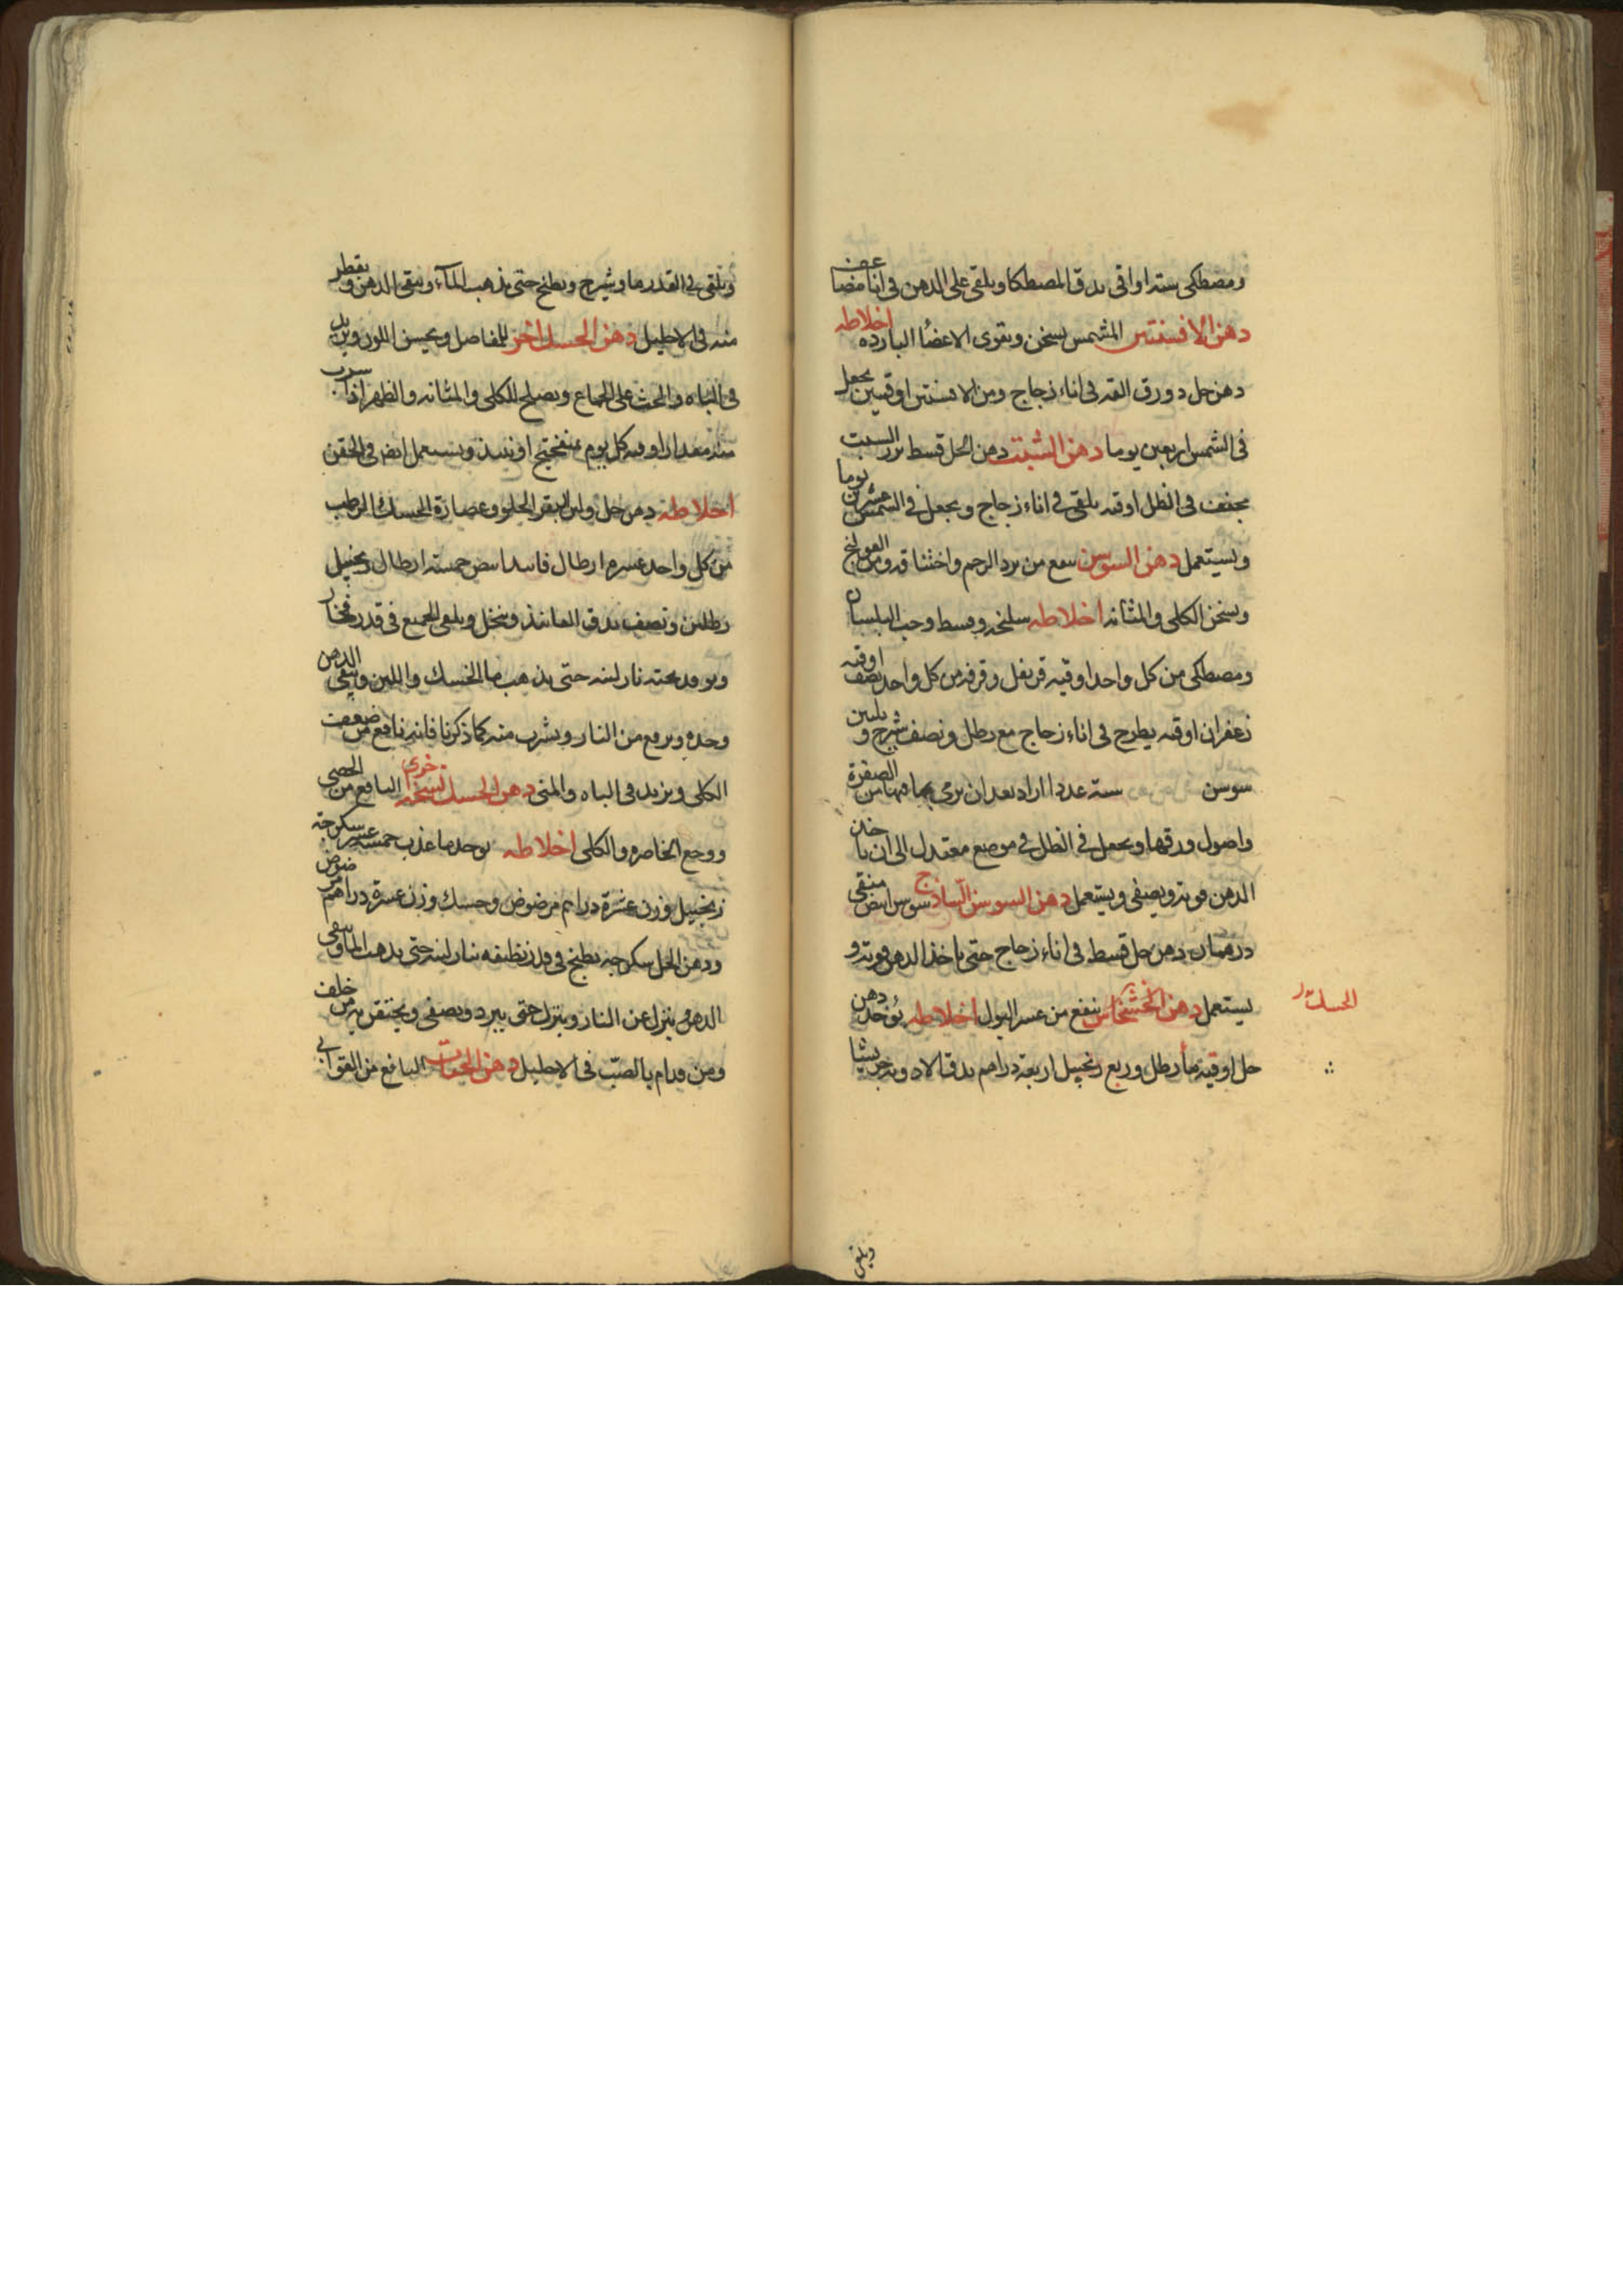 ومصطكى ستة اواقى يدق المصطكا ويلقى على الدهن فى انا مضاعف
دهن الافسنتين المشمس يسخن ويقوى الاعضاء البارده اخلاطه
دهن حل دورق القه فى اناء زجاج ومن الافسنتين اوقيتين يجعل
فى الشمس اربعين يوما دهن الشبت دهن الحل قسط بزر الشبت
مجفف فى الظل اوقيه يلقى فى اناء زجاج ويجعل فى الشمس عشرين يوما
ويستعمل دهن السوسن ينفع من برد الرحم واختناقه ومن القولنج
ويسخن الكلى والمثانه اخلاطه سليخه وقسط وحب البلسان
ومصطكى من كل واحد اوقيه قرنفل وقرفه من كل واحد نصف اوقيه
زعفران اوقيه يطرح فى اناء زجاج مع رطل ونصف شيرج و
سوسن ستة عددا ازاد بعد ان يرمى بما فيها من الصفرة
واصول ورقها ويجعل فى الظل فى موضع معتدل الى ان ياخذ
الدهن قوته ويصفى ويستعمل دهن السوسن الساذج سوسن ابيض منقى
درهمان دهن حل قسط فى اناء زجاج حتى ياخذ الدهن قوته و
يستعمل دهن الخشخاش ينفع من عسر البول اخلاطه يؤخذ دهن
الحسك
حل اوقية ماء رطل وربع زنجبيل اربعة دراهم يدق الادويه جريشا
ويلقى
ويلقى فى القدر ما وشيرج ويطبخ حتى يذهب المآء ويبقى الدهن ويقطر
منه فى الاحليل دهن الحسك اخر للمفاصل ويحسن اللون ويزيد
فى الباه والحث على الجماع ويصلح للكلى والمثانه والظهر اذا شرب
منه مقدار اوقيه كل يوم بمنفختج او نبيذ ويستعمل ايضا فى الحقن
اخلاطه دهن حل ولبن البقر الحلو وعصارة الحسك الرطب
من كل واحد عشرة ارطال فانيد ابيض خمسة ارطال زنجبيل
رطلين ونصف يدق الفانيذ وينخل ويلقى الجميع فى قدر فخار
ويوقد تحته نار لينه حتى يذهب ما الحسك واللبن ويبقى الدهن
وحده ويرفع من النار ويشرب منه كما ذكرنا فانه نافع من ضعف
الكلى ويزيد فى الباه والمنى دهن الحسك نسخه اخرى النافع من الحصى
ووجع الخاصره والكلى اخلاطه يوخذ ما عذب خمسة عشر سكرجة
زنجبيل وزن عشرة دراهم مرضوض وحسك وزن عشرة دراهم مرضوض
ودهن الحل سكرجه يطبخ فى قدر نظيفه بنار لينه حتى يذهب الما ويبقى
الدهن وينزل عن النار ويترك حتى يبرد ويصفى ويحتقن به من خلف
ومن قدام بالصبّ فى الاحليل دهن الحيات النافع من القوابى